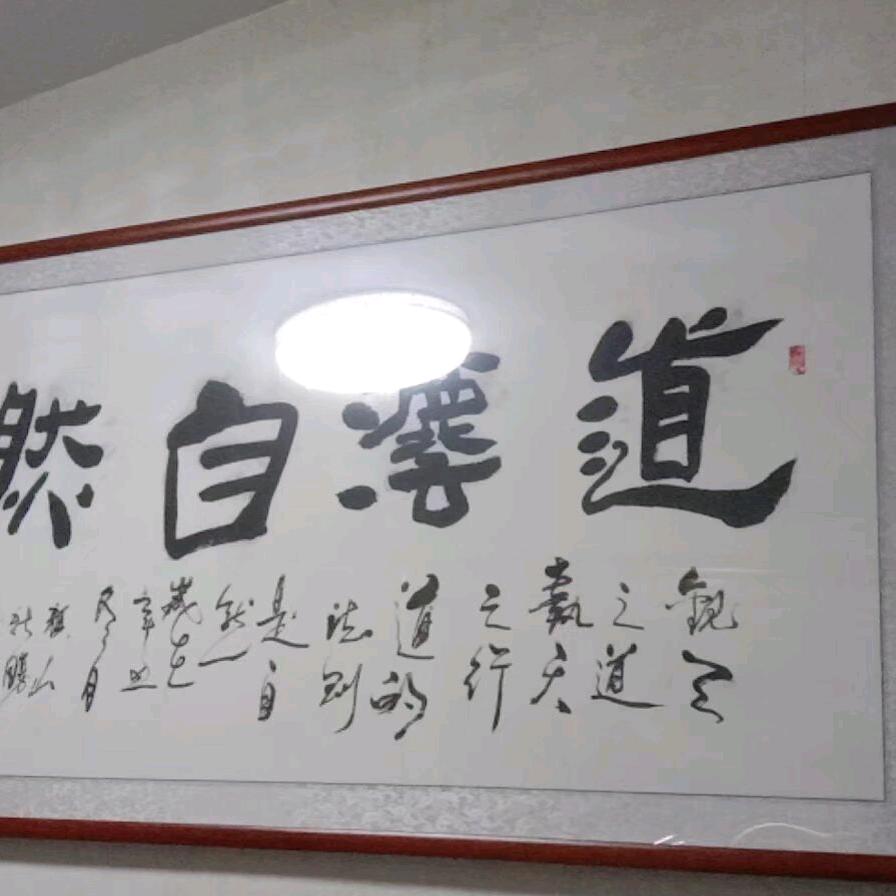 道灋自然
觀天
之道
執天
之行
道的
法則
是自
然
歲在
辛丑
月
山